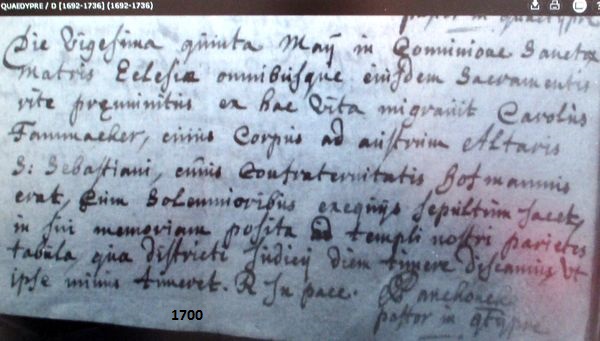 QUAEDYPRE / D [1692-1736] (1692-1736)
pastor in quaedypre
Die Vigesima quinta Maij in Com̄unione Sanctæ
Matris Eclesiæ omnibusque eiusdem Sacramentis
rite præmunitus ex hac Vita migravit Carolus
Fammaeker, cuius Corpus ad austrum Altaris
S: Sebastiani, cuius Confraternitatis
erat, Cum Solemnioribus exequijs sepultum Jacet,
in sui memoriam posita ad templi nostri parietes
tabula, qua districti Judicij diem timere discamus, Ut
ipse minus timeret. R In pace.
pastor in
1700